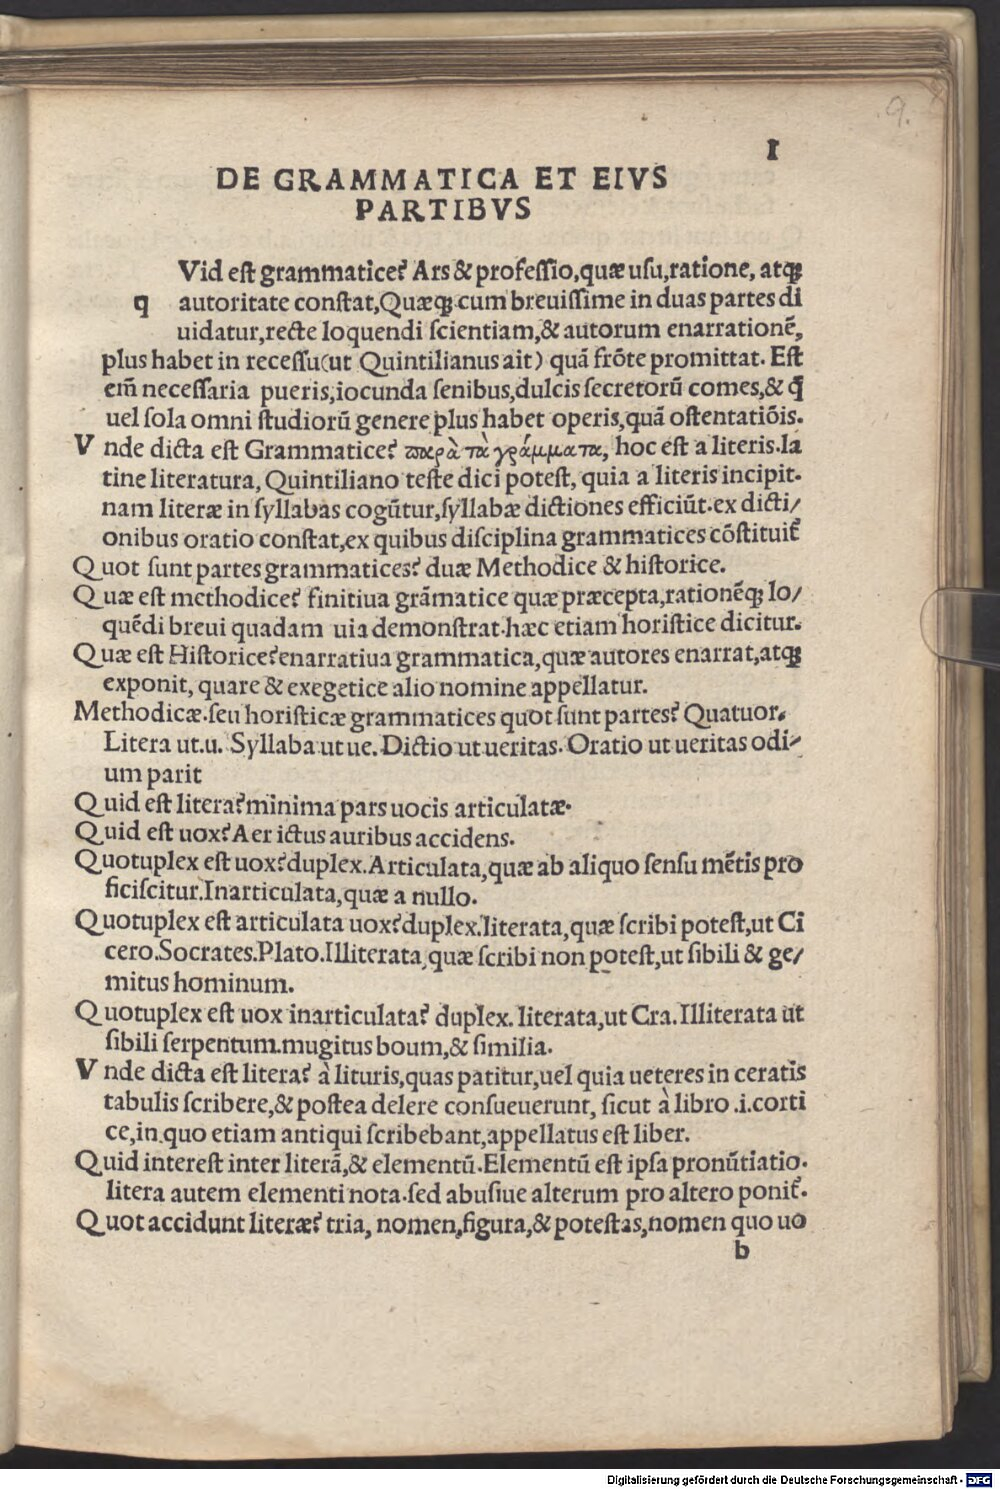 9.
I
DE GRAMMATICA ET EIVS
PARTIBVS
Vid est grammatice? Ars & professio, quæ usu, ratione, atqꝫ
q autoritate constat, Quæqꝫ cum breuissime in duas partes di
uidatur, recte loquendi scientiam, & autorum enarrationē,
plus habet in recessu (ut Quintilianus ait) quā frōte promittat. Est
em̄ necessaria pueris, iocunda senibus, dulcis secretorū comes, & q̄
uel sola omni studiorū genere plus habet operis, quā ostentatiōis.
V nde dicta est Grammatice? παρὰ τὰ γράμματα, hoc est a literis. la
tine literatura, Quintiliano teste dici potest, quia a literis incipit.
nam literæ in syllabas cogūtur, syllabæ dictiones efficiūt. ex dicti/
onibus oratio constat, ex quibus disciplina grammatices cōstituit᷑
Quot sunt partes grammatices? duæ Methodice & historice.
Quæ est methodice? finitiua grāmatice quæ præcepta, rationēqꝫ lo/
quēdi breui quadam uia demonstrat. hæc etiam horistice dicitur.
Quæ est Historice? enarratiua grammatica, quæ autores enarrat, atqꝫ
exponit, quare & exegetice alio nomine appellatur.
Methodicæ. seu horisticæ grammatices quot sunt partes? Quatuor.
Litera ut. u. Syllaba ut ue. Dictio ut ueritas. Oratio ut ueritas odi/
um parit
Quid est litera? minima pars uocis articulatæ.
Quid est uox? Aer ictus auribus accidens.
Quotuplex est uox? duplex. Articulata, quæ ab aliquo sensu mētis pro
ficiscitur. Inarticulata, quæ a nullo.
Quotuplex est articulata uox? duplex. literata, quæ scribi potest, ut Ci
cero. Socrates. Plato. Illiterata, quæ scribi non potest, ut sibili & ge/
mitus hominum.
Quotuplex est uox inarticulata? duplex. literata, ut Cra. Illiterata ut
sibili serpentum. mugitus boum, & similia.
V nde dicta est litera? à lituris, quas patitur, uel quia ueteres in ceratis
tabulis scribere, & postea delere consueuerunt, sicut à libro .i. corti
ce, in quo etiam antiqui scribebant, appellatus est liber.
Quid interest inter literā, & elementū. Elementū est ipsa pronūtiatio.
litera autem elementi nota. sed abusiue alterum pro altero ponit᷑.
Quot accidunt literæ? tria, nomen, figura, & potestas, nomen quo uo
b
Digitalisierung gefördert durch die Deutsche Forschungsgemeinschaft - DFG